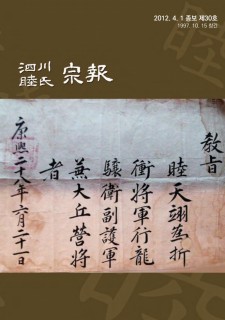 2012. 4. 1 종보 제30호
1997. 10. 15 창간
泗川
睦氏 宗報
敎旨
睦天翊爲折
衝將軍行龍
驤衛副護軍
兼大丘營將
者
康熙二十八年六月二十一日